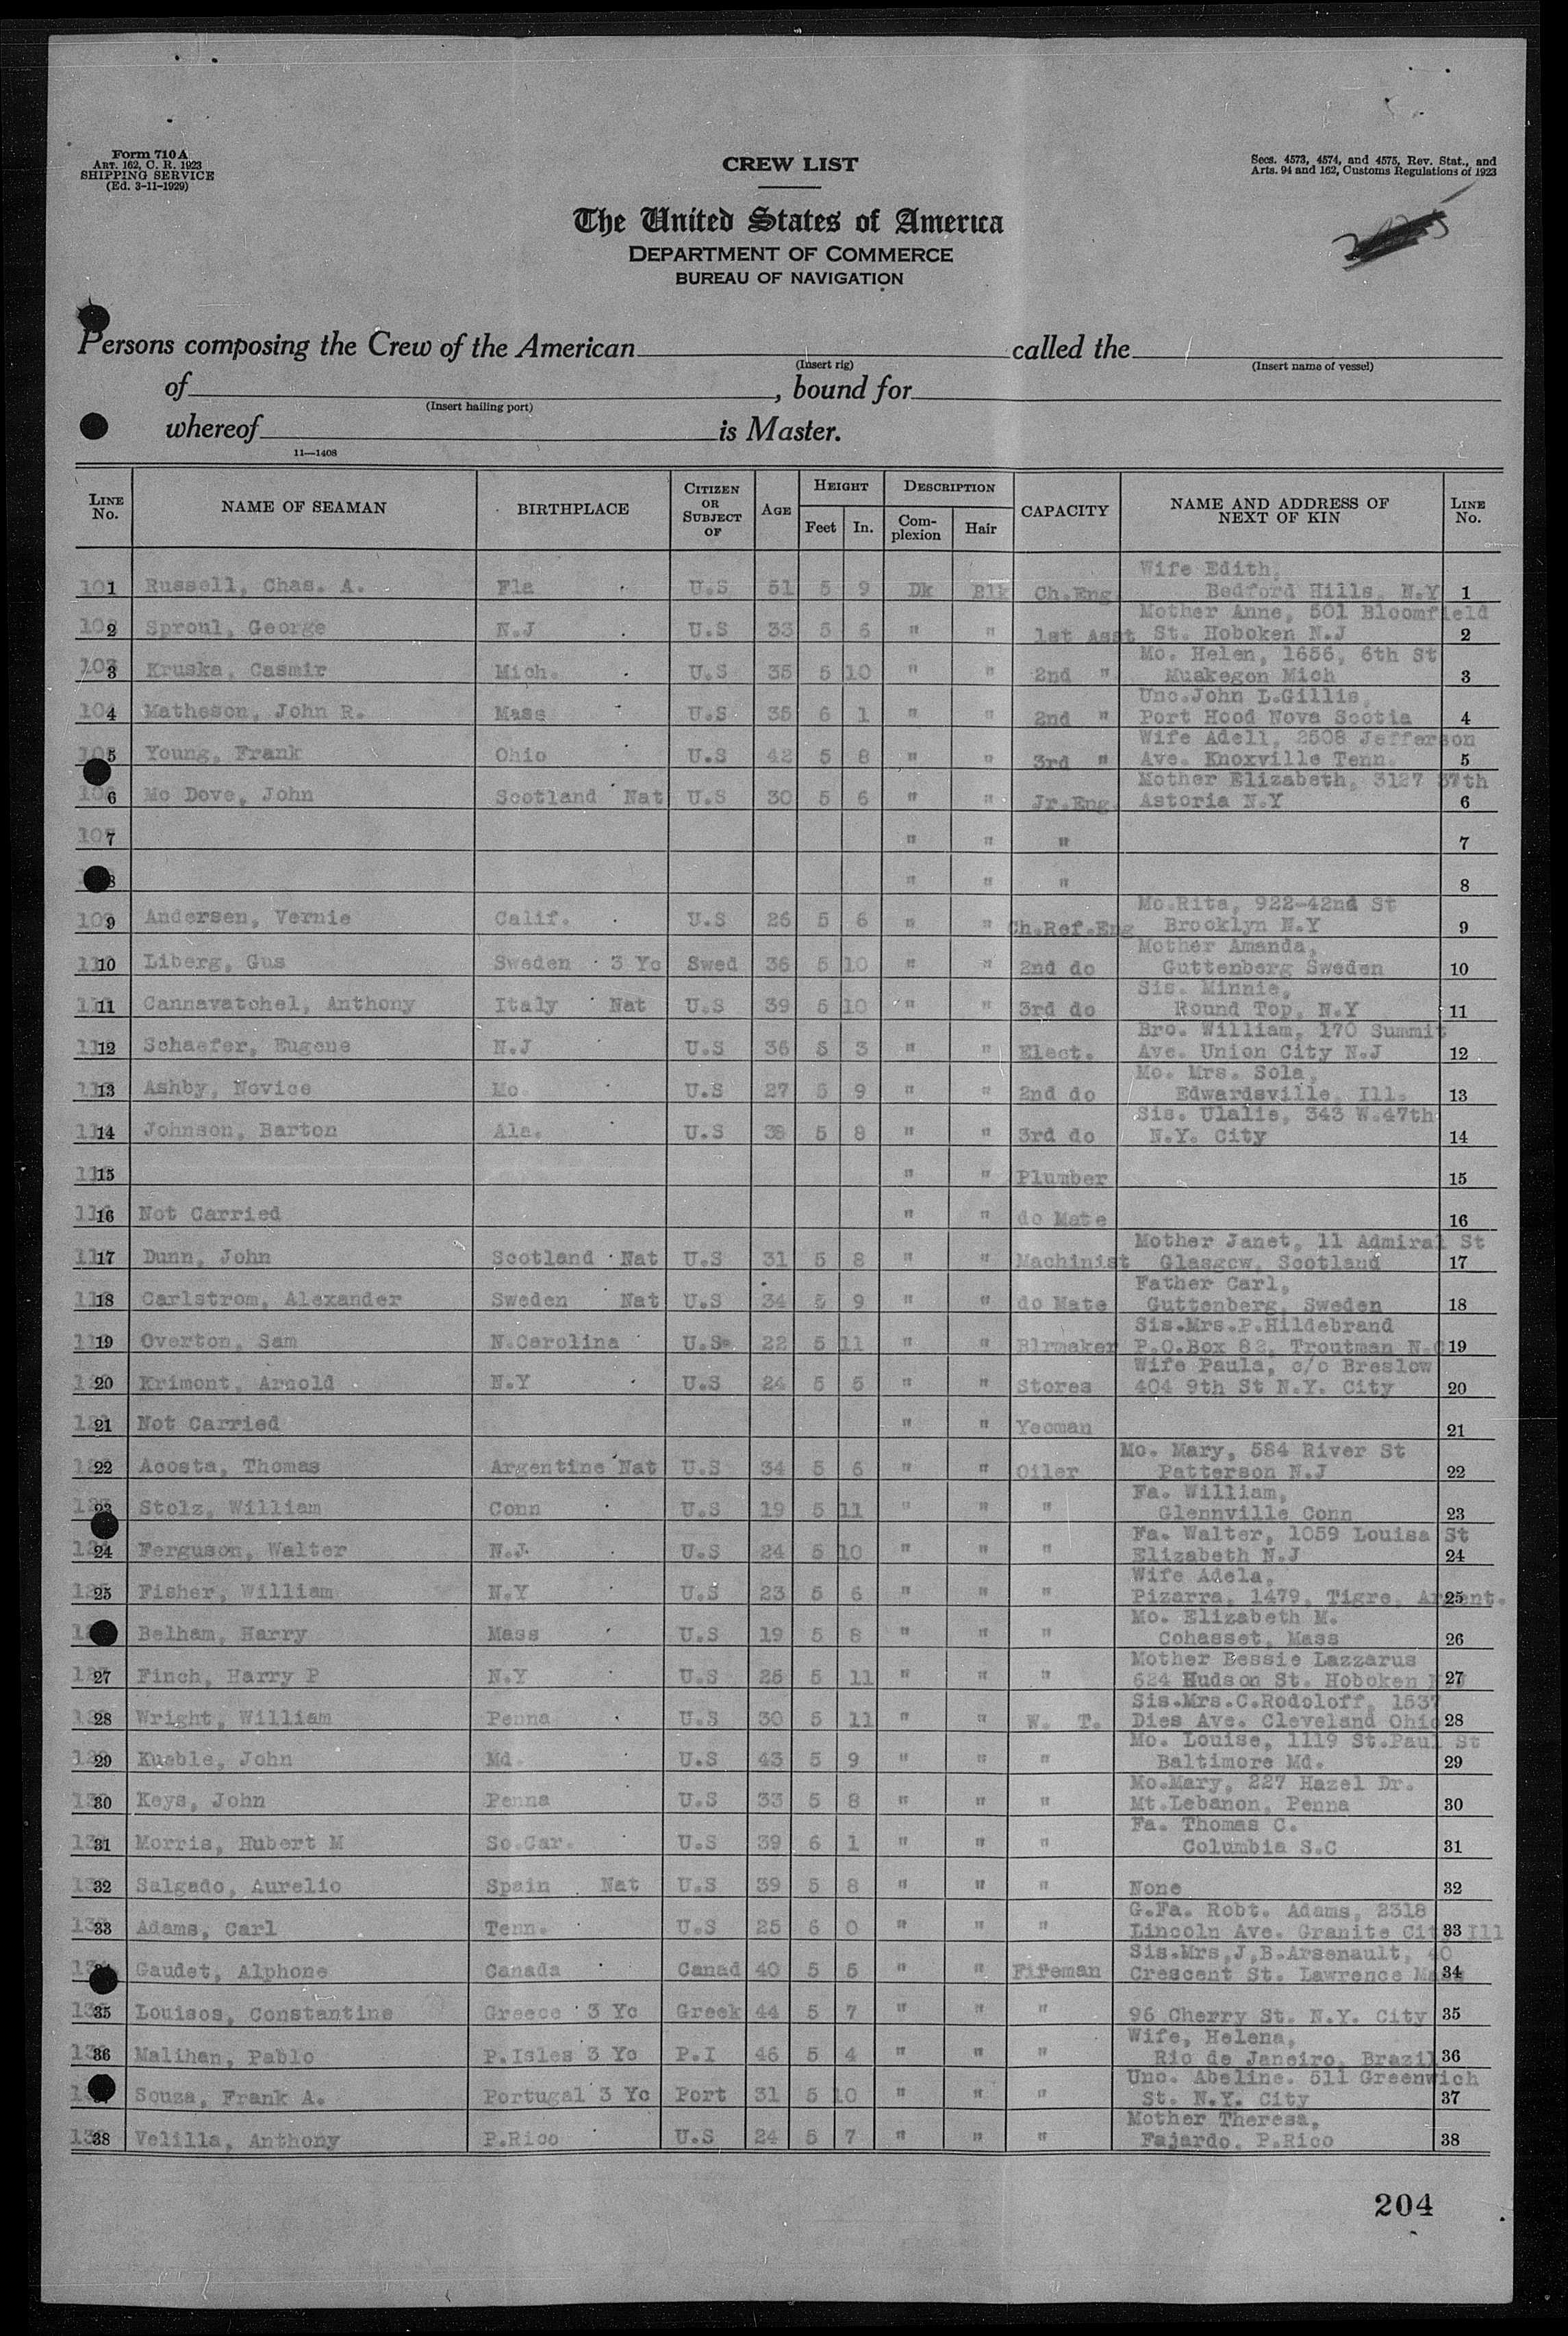 Form 710A
ART. 162, C. R. 1923
SHIPPING SERVICE
(Ed. 3-11-1929)
CREW LIST
Secs. 4573, 4574, and 4575, Rev. Stat., and
Arts. 94 and 162, Customs Regulations of 1923
The United States of America
DEPARTMENT OF COMMERCE
BUREAU OF NAVIGATION
Persons composing the Crew of the American called the
(Insert rig) (Insert name of vessel)
of , bound for
(Insert hailing port)
whereof is Master.
11—1408
LINE No. NAME OF SEAMAN BIRTHPLACE CITIZEN OR SUBJECT OF AGE HEIGHT Feet In. DESCRIPTION Com-plexion Hair CAPACITY NAME AND ADDRESS OF NEXT OF KIN LINE No.
Wife Edith,
1 Russell, Chas. A. Fla U.S 51 5 9 Dk Blk Ch.Eng Bedford Hills, N.Y 1
Mother Anne, 501 Bloomfield
2 Sproul, George N.J U.S 33 5 6 " " 1st Asst St. Hoboken N.J 2
Mo. Helen, 1656, 6th St
3 Kruska, Casmir Mich. U.S 35 5 10 " " 2nd " Muskegon Mich 3
Unc.John L.Gillis,
4 Matheson, John R. Mass U.S 35 6 1 " " 2nd " Port Hood Nova Scotia 4
Wife Adell, 2508 Jefferson
5 Young, Frank Ohio U.S 42 5 8 " " 3rd " Ave. Knoxville Tenn. 5
Mother Elizabeth, 3127 37th
6 Mc Dove, John Scotland Nat U.S 30 5 6 " " Jr.Eng. Astoria N.Y 6
7 " " " 7
8 " " " 8
Mo.Rita, 922-42nd St
9 Andersen, Vernie Calif. U.S 26 5 6 " " Ch.Ref.Eng Brooklyn N.Y 9
Mother Amanda,
10 Liberg, Gus Sweden 3 Yc Swed 36 5 10 " " 2nd do Guttenberg Sweden 10
Sis. Minnie,
11 Cannavatchel, Anthony Italy Nat U.S 39 5 10 " " 3rd do Round Top, N.Y 11
Bro. William, 170 Summit
12 Schaefer, Eugene N.J U.S 36 5 3 " " Elect. Ave. Union City N.J 12
Mo. Mrs. Sola,
13 Ashby, Novice Mo. U.S 27 5 9 " " 2nd do Edwardsville, Ill. 13
Sis. Ulalie, 343 W.47th
14 Johnson, Barton Ala. U.S 38 5 8 " " 3rd do N.Y. City 14
15 " " Plumber 15
16 Not Carried " " do Mate 16
Mother Janet, 11 Admiral St
17 Dunn, John Scotland Nat U.S 31 5 8 " " Machinist Glasgow, Scotland 17
Father Carl,
18 Carlstrom, Alexander Sweden Nat U.S 34 5 9 " " do Mate Guttenberg, Sweden 18
Sis.Mrs.P.Hildebrand
19 Overton, Sam N.Carolina U.S 22 5 11 " " Blrmaker P.O.Box 82, Troutman N.C 19
Wife Paula, c/o Breslow
20 Krimont, Arnold N.Y U.S 24 5 5 " " Stores 404 9th St N.Y. City 20
21 Not Carried " " Yeoman 21
Mo. Mary, 584 River St
22 Acosta, Thomas Argentine Nat U.S 34 5 6 " " Oiler Patterson N.J 22
Fa. William,
23 Stolz, William Conn U.S 19 5 11 " " " Glennville Conn 23
Fa. Walter, 1059 Louisa St
24 Ferguson, Walter N.J. U.S 24 5 10 " " " Elizabeth N.J 24
Wife Adela,
25 Fisher, William N.Y U.S 23 5 6 " " " Pizarra, 1479, Tigre, Argent. 25
Mo. Elizabeth M.
Belham, Harry Mass U.S 19 5 8 " " " Cohasset, Mass 26
Mother Bessie Lazzarus
27 Finch, Harry P N.Y U.S 25 5 11 " " " 624 Hudson St. Hoboken N.J 27
Sis.Mrs.C.Rodoloff, 1537
28 Wright, William Penna U.S 30 5 11 " " W. T. Dies Ave. Cleveland Ohio 28
Mo. Louise, 1119 St.Paul St
29 Kueble, John Md. U.S 43 5 9 " " " Baltimore Md. 29
Mo.Mary, 227 Hazel Dr.
30 Keys, John Penna U.S 33 5 8 " " " Mt.Lebanon, Penna 30
Fa. Thomas C.
31 Morris, Hubert M So.Car. U.S 39 6 1 " " " Columbia S.C 31
32 Salgado, Aurelio Spain Nat U.S 39 5 8 " " " None 32
G.Fa. Robt. Adams, 2318
33 Adams, Carl Tenn. U.S 25 6 0 " " " Lincoln Ave. Granite City Ill 33
Sis.Mrs,J,B.Arsenault, 40
Gaudet, Alphone Canada Canad 40 5 5 " " Fireman Crescent St. Lawrence Mass 34
35 Louisos, Constantine Greece 3 Yc Greek 44 5 7 " " " 96 Cherry St. N.Y. City 35
Wife, Helena,
36 Malihan, Pablo P.Isles 3 Yc P.I 46 5 4 " " " Rio de Janeiro, Brazil 36
Unc. Abeline. 511 Greenwich
Souza, Frank A. Portugal 3 Yc Port 31 5 10 " " " St. N.Y. City 37
Mother Theresa,
38 Velilla, Anthony P.Rico U.S 24 5 7 " " " Fajardo, P.Rico 38
204